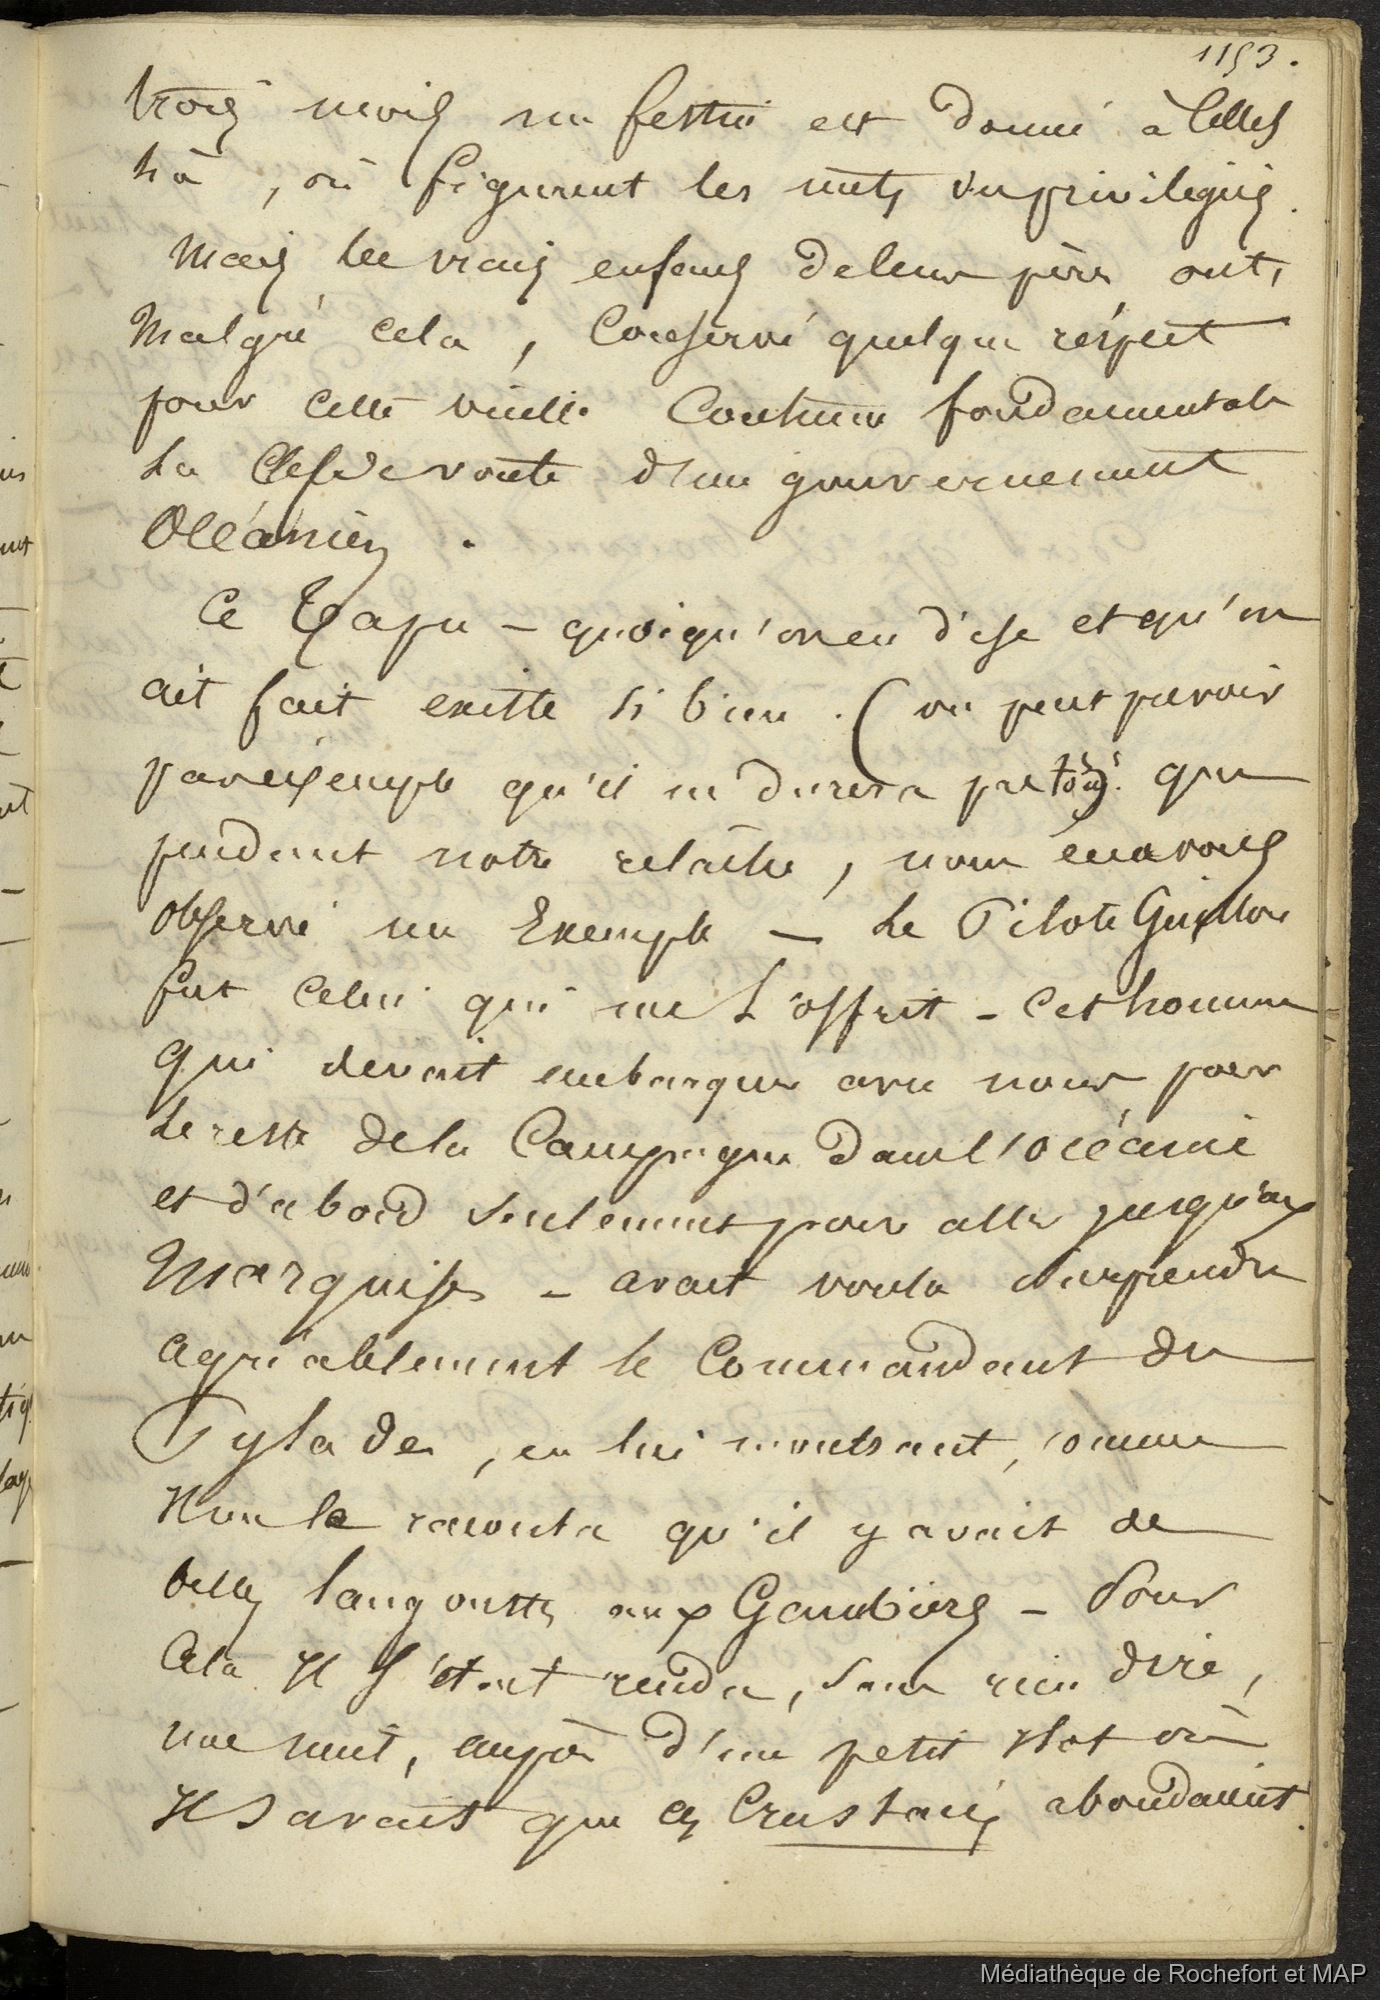 1153.
trois mois un festin est donné à Celles
là, où figurent les mets susprivilegiés.
Mais les vrais enfans de leurs pères ont,
Malgré cela, Conservé quelque réspect
pour cette vieille Coutume fondamentale
La Clef de voute d'un gouvernement
Océanien.
Ce Tapu – quoiqu'on en dise et qu'on
ait fait existe si bien. (on peut prevoir
par exemple qu'il ne durera pas toujs). que
pendant notre relâche, nous en avons
observé un Exemple – Le Pilote Guillou
fut celui qui me L'offrit – Cet homme
qui devait embarquer avec nous pour
Le reste de la Campagne dans l'océanie
et d'abord Seulement pour aller jusqu'aux
Marquises – avait voulu Surprendre
agréablement le Commandant du
Pylade, en lui montrant, comme
Il me le raconta qu'il y avait de
belles langoustes aux Gambiers – Pour
Cela Il S'était rendu, Sans rien dire,
une nuit, auprès d'un petit Ilot où
Il Savait que ces Crustacés abondaient.
Médiathèque de Rochefort et MAP